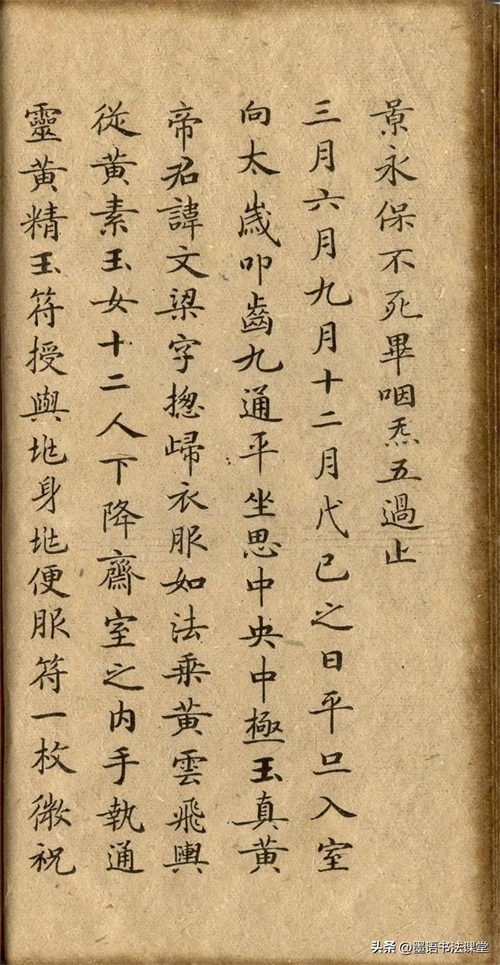 景永保不死畢咽炁五過止
三月六月九月十二月戊己之日平旦入室
向太歲叩齒九通平坐思中央中極玉真黃
帝君諱文梁字揔歸衣服如法乗黃雲飛輿
從黃素玉女十二人下降齋室之內手執通
靈黃精玉符授與地身地便服符一枚微祝
头条 @墨语书法课堂